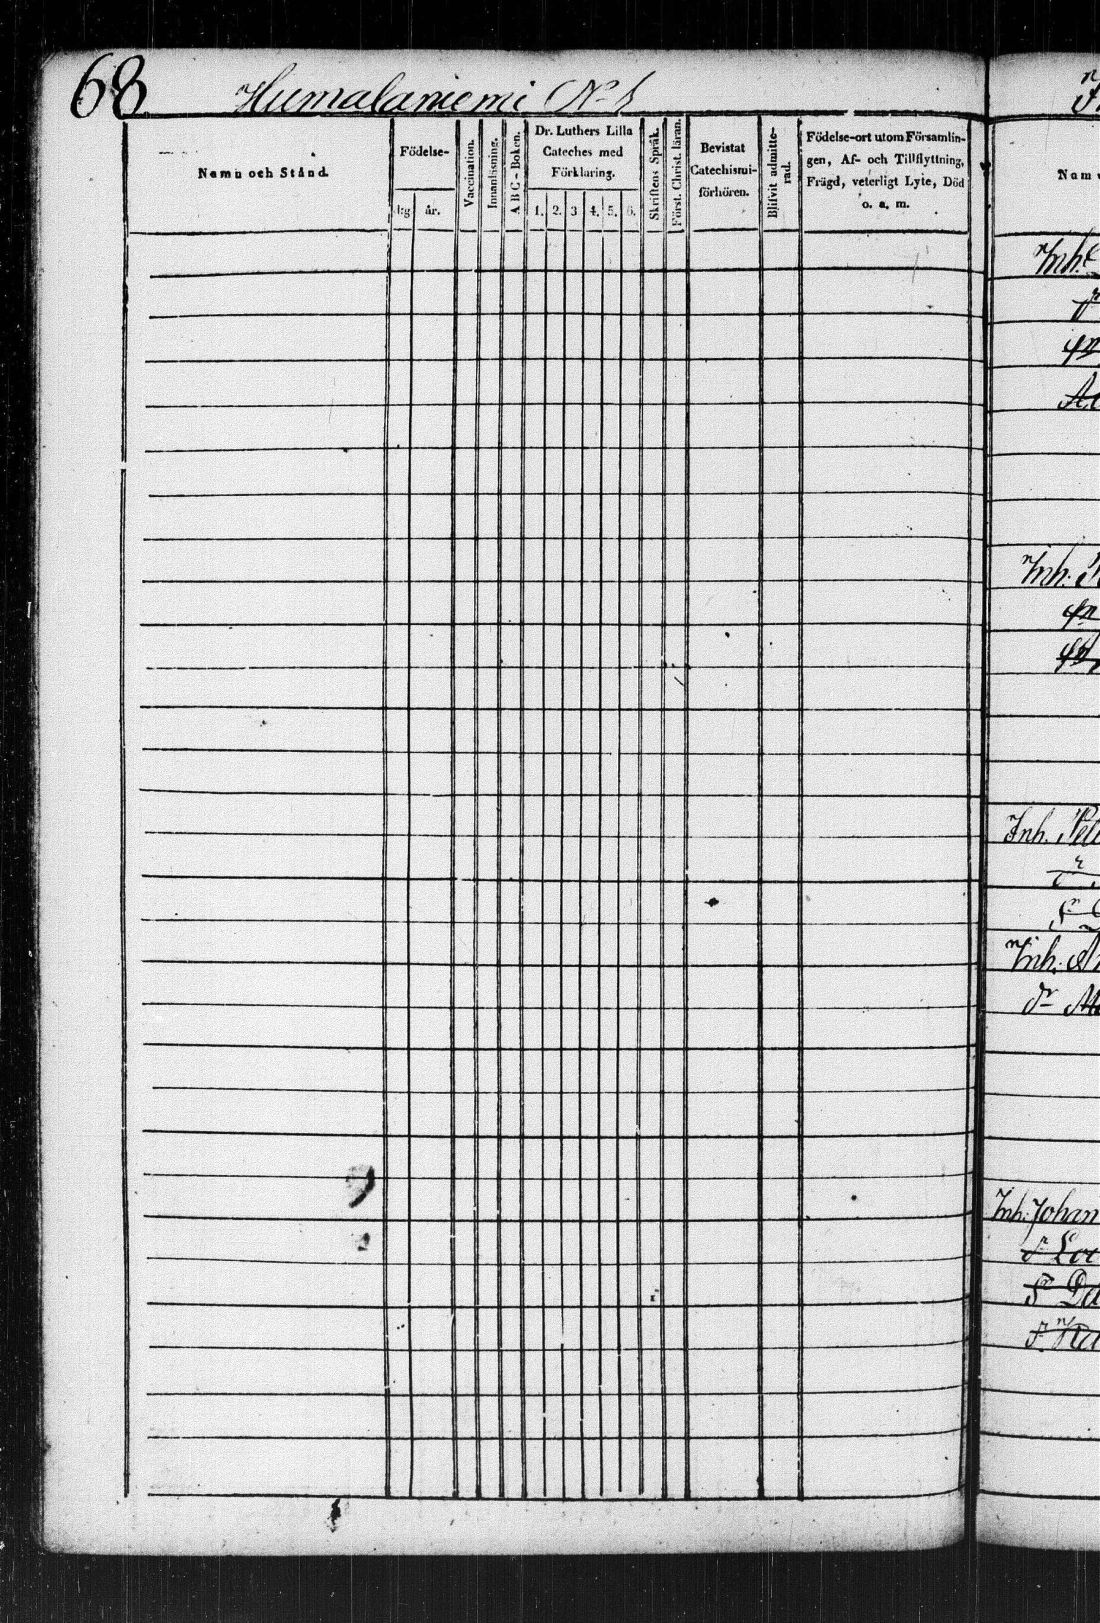 68 Humalaniemi No
Namn och Stånd.
Födelse-
dg år.
Vaccination.
Innanläsning.
A B C-Boken.
Dr. Luthers Lilla
Cateches med
Förklaring.
1. 2. 3 4. 5. 6.
Skriftens Språk.
Först. Christ. läran.
Bevistat
Catechismi-
förhören.
Blifvit admitte-
rad.
Födelse-ort utom Församlin-
gen, Af- och Tillflyttning,
Frägd, veterligt Lyte, Död
o. a. m.
Nam
Inh.
Inh.
Inh. Pet
Inh.
Inh. Johan